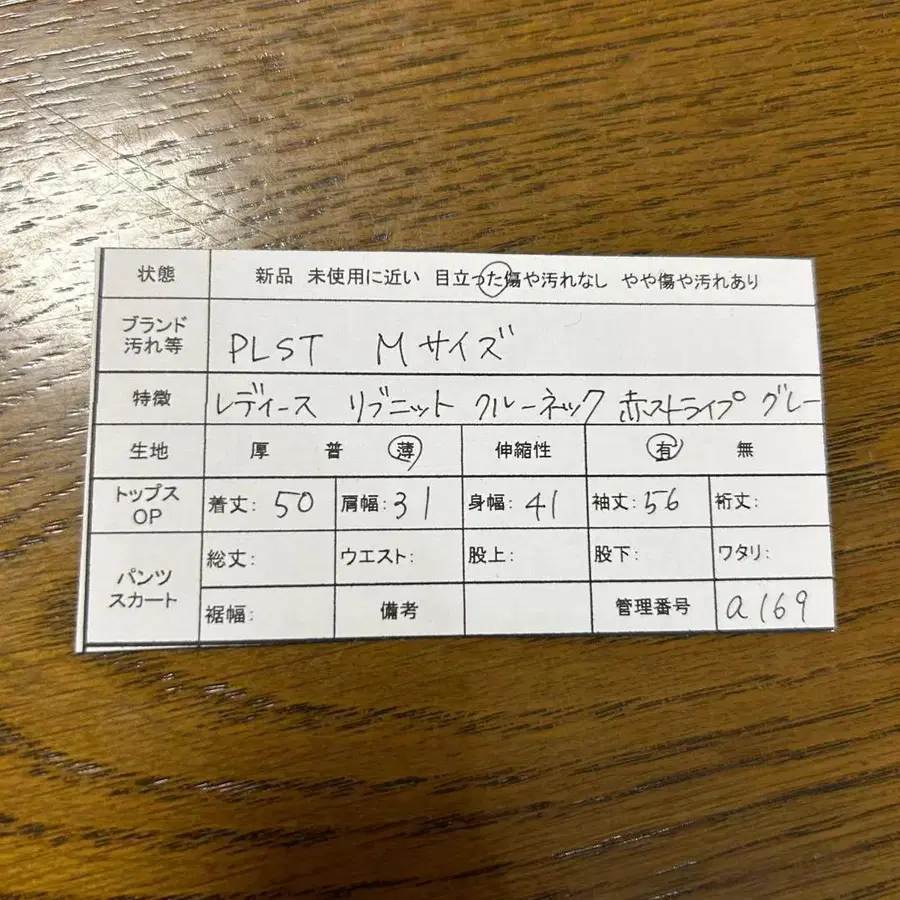 状態 新品 未使用に近い 目立った傷や汚れなし やや傷や汚れあり
ブランド
汚れ等 PLST Mサイズ
特徴 レディース リブニット クルーネック 赤ストライプ グレー
生地 厚 普 薄 伸縮性 有 無
トップス
OP 着丈: 50 肩幅: 31 身幅: 41 袖丈: 56 裄丈:
パンツ
スカート 総丈: ウエスト: 股上: 股下: ワタリ:
裾幅: 備考 管理番号 a169